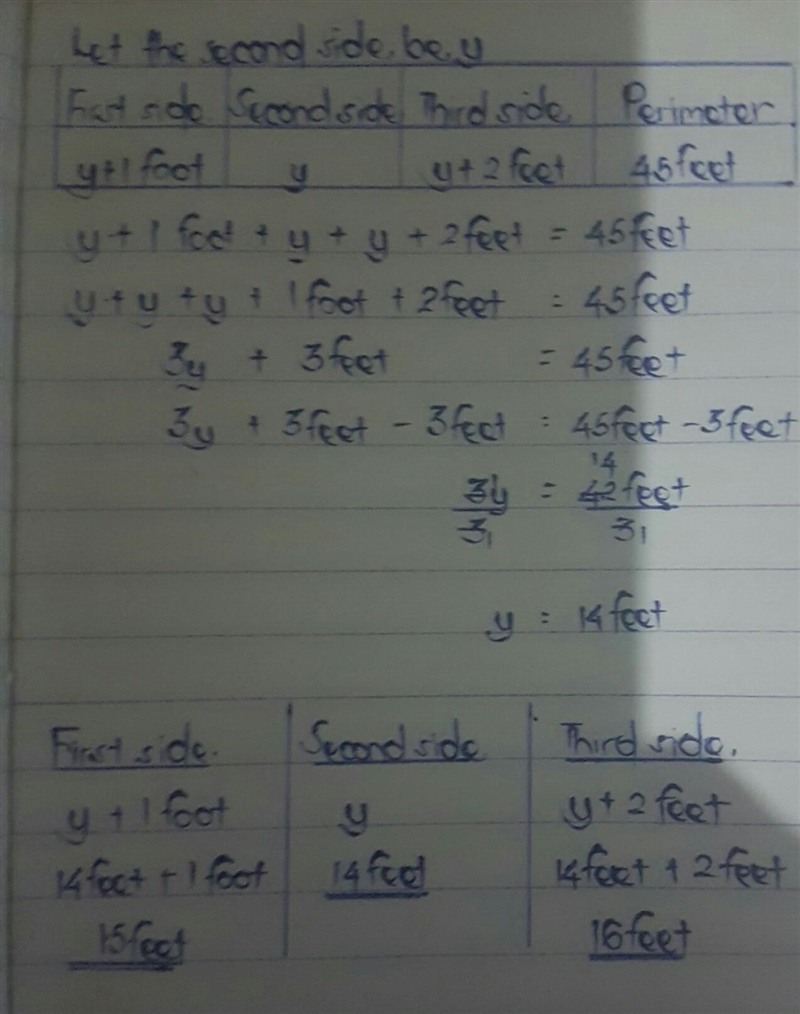 Let the second side be y
First side Second side Third side Perimeter
y+1 foot y y+2 feet 45 feet
y + 1 foot + y + y + 2 feet = 45 feet
y + y + y + 1 foot + 2 feet = 45 feet
3y + 3 feet = 45 feet
3y + 3 feet - 3 feet = 45 feet - 3 feet
14
3y = 42 feet
3 1 3 1
y = 14 feet
First side. Second side Third side.
y + 1 foot y y + 2 feet
14 feet + 1 foot 14 feet 14 feet + 2 feet
15 feet 16 feet